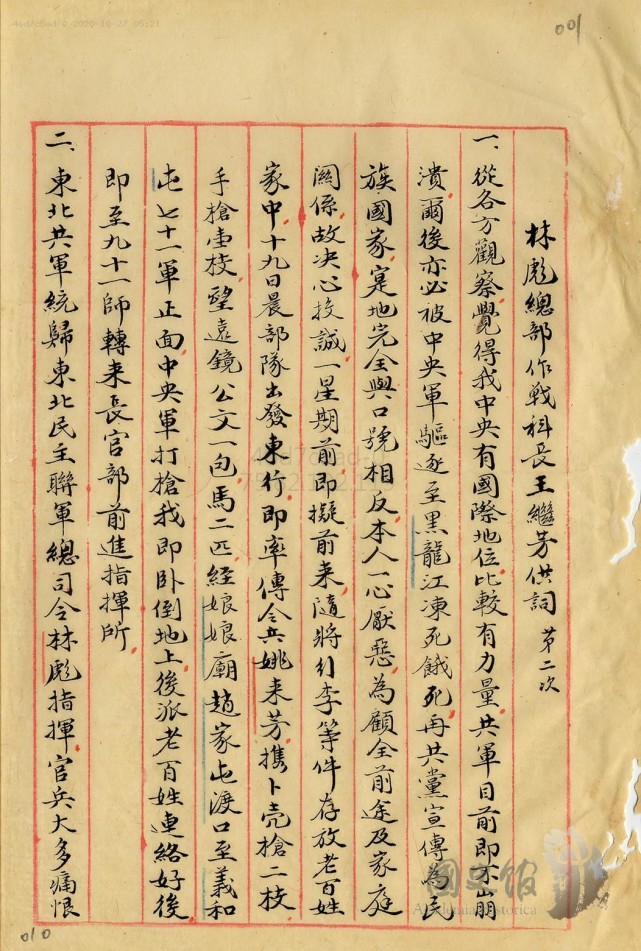 001
林彪總部作戰科長王繼芳供詞 第二次
一、從各方觀察，覺得我中央有國際地位，比較有力量，共軍目前即不崩
潰，爾後亦必被中央軍驅逐至黑龍江凍死餓死，再共黨宣傳為民
族國家，實地完全與口號相反，本人一心厭惡，為顧全前途及家庭
關係，故決心投誠，一星期前即擬前來，隨將行李等件存放老百姓
家中，十九日晨部隊出發東行，即率傳令兵姚来芳，携卜壳槍二枝
手槍壹枝，望遠鏡公文一包，馬二匹，經娘娘廟趙家屯渡口至義和
屯七十一軍正面，中央軍打槍，我即卧倒地上，後派老百姓連絡好後
即至九十一師轉来長官部前進指揮所。
二、東北共軍統歸東北民主聯軍總司令林彪指揮，官兵大多痛恨
010
國史館
Academia Historica